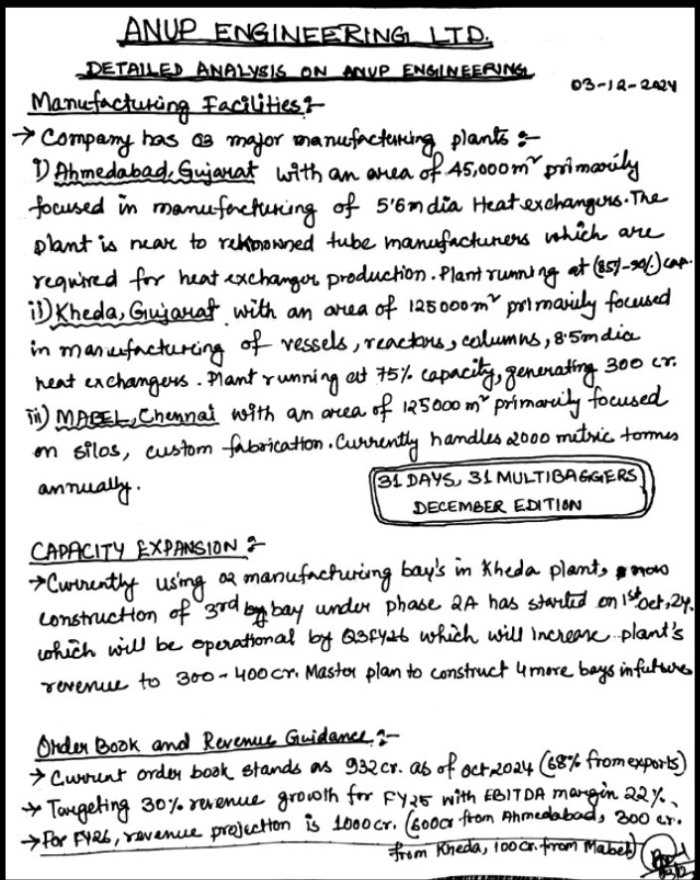 ANUP ENGINEERING LTD.
DETAILED ANALYSIS ON ANUP ENGINEERING
03-12-2024
Manufacturing Facilities:-
→ Company has 03 major manufacturing plants :-
i) Ahmedabad, Gujarat with an area of 45,000 m² primarily
focused in manufacturing of 5.6m dia Heat exchangers. The
plant is near to reknowned tube manufacturers which are
required for heat exchanger production. Plant running at (85%-90%) cap.
ii) Kheda, Gujarat with an area of 125000 m² primarily focused
in manufacturing of vessels, reactors, columns, 8.5m dia
heat exchangers. Plant running at 75% capacity, generating 300 cr.
iii) MABEL, Chennai with an area of 125000 m² primarily focused
on silos, custom fabrication. Currently handles 2000 metric tonnes
annually.
31 DAYS, 31 MULTIBAGGERS
DECEMBER EDITION
CAPACITY EXPANSION :-
→ Currently using 02 manufacturing bay's in Kheda plant, now
construction of 3rd bay under phase 2A has started on 1st Oct, 24.
which will be operational by Q3FY26 which will increase plant's
revenue to 300-400 cr. Master plan to construct 4 more bays in future
Order Book and Revenue Guidance :-
→ Current order book stands as 932 cr. as of Oct, 2024 (68% from exports)
→ Targeting 30% revenue growth for FY25 with EBITDA margin 22%.
→ For FY26, revenue projection is 1000 cr. (600 cr from Ahmedabad, 300 cr.
from Kheda, 100 cr. from Mabel)